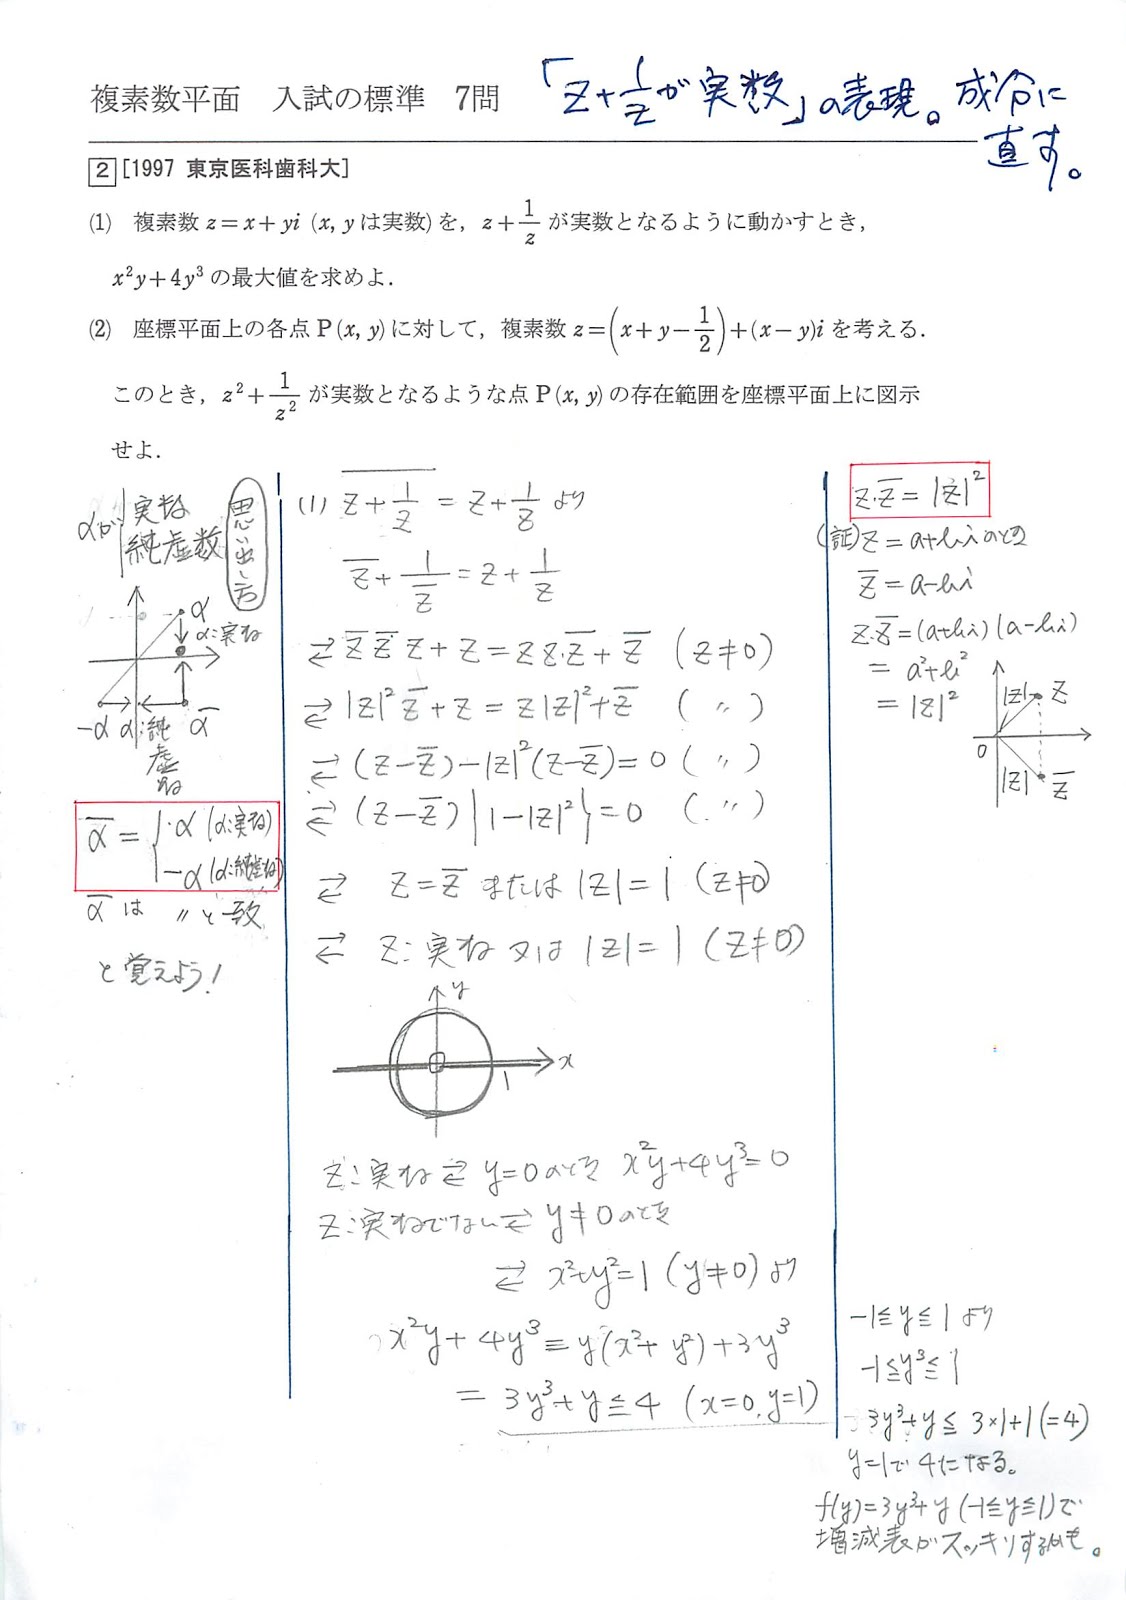 複素数平面 入試の標準 7問
「z+1/zが実数」の表現。成分に
直す。
2 [1997 東京医科歯科大]
(1) 複素数 z=x+yi (x, y は実数) を, z+1/z が実数となるように動かすとき,
x²y+4y³ の最大値を求めよ.
(2) 座標平面上の各点 P(x, y) に対して, 複素数 z=(x+y-1/2)+(x-y)i を考える.
このとき, z²+1/z² が実数となるような点 P(x, y) の存在範囲を座標平面上に図示
せよ.
αが 実数
純虚数
思い出し方
α
α:実数
-α α:純虚数 α̅
α̅ = { α (α:実数)
-α (α:純虚数)
α̅ は 〃と一致
と覚えよう!
(1) \overline{z+1/z} = z+1/z より
z̅+1/z̅ = z+1/z
⇄ z̅ z̅ z+z = z z·z̅+z̅ (z≠0)
⇄ |z|² z̅+z = z|z|²+z̅ (〃)
⇄ (z-z̅)-|z|²(z-z̅)=0 (〃)
⇄ (z-z̅){1-|z|²}=0 (〃)
⇄ z=z̅ または |z|=1 (z≠0)
⇄ z:実数 又は |z|=1 (z≠0)
y
x
1
z:実数 ⇄ y=0のとき x²y+4y³=0
z:実数でない ⇄ y≠0のとき
⇄ x²+y²=1 (y≠0) より
x²y+4y³=y(x²+y²)+3y³
= 3y³+y≦4 (x=0, y=1)
z·z̅=|z|²
(証) z=a+biのとき
z̅=a-bi
z·z̅=(a+bi)(a-bi)
= a²+b²
= |z|²
|z| z
0
|z| z̅
-1≦y≦1 より
-1≦y³≦1
3y³+y≦3×1+1(=4)
y=1で4になる。
f(y)=3y³+y (-1≦y≦1)で
増減表がスッキリするかも。